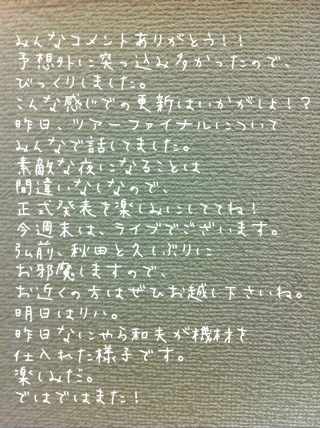 みんなコメントありがとう！！
予想外に突っ込み多かったので、
びっくりしました。
こんな感じでの更新はいかがしょ！？
昨日、ツアーファイナルについて
みんなで話してました。
素敵な夜になることは
間違いなしなので、
正式発表を楽しみにしててね！
今週末は、ライブでございます。
弘前、秋田と久しぶりに
お邪魔しますので、
お近くの方はぜひお越し下さいね。
明日はリハ。
昨日なにやら和夫が機材を
仕入れた様子です。
楽しみだ。
ではではまた！